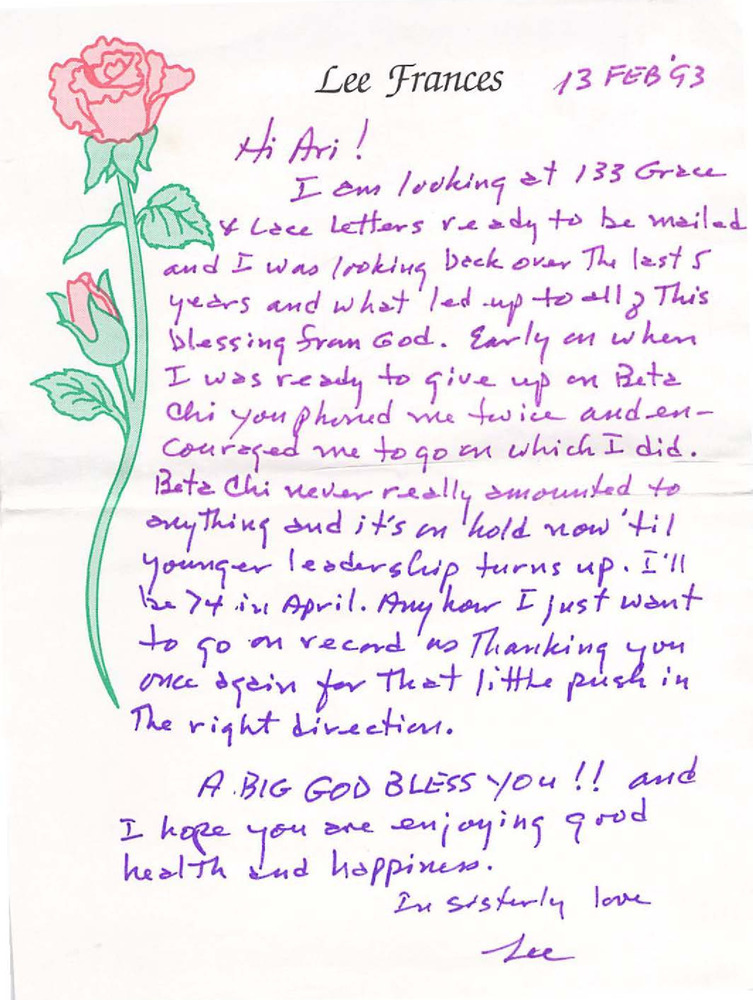 Lee Frances 13 FEB '93
Hi Ari!
I am looking at 133 Grace
& Lace Letters ready to be mailed
and I was looking back over The last 5
years and what led up to all of This
blessing from God. Early on when
I was ready to give up on Beta
Chi you phoned me twice and en-
couraged me to go on which I did.
Beta Chi never really amounted to
anything and it's on hold now 'til
younger leadership turns up. I'll
be 74 in April. Anyhow I just want
to go on record as Thanking you
once again for That little push in
The right direction.
A BIG GOD BLESS YOU!! and
I hope you are enjoying good
health and happiness.
In sisterly love
Lee